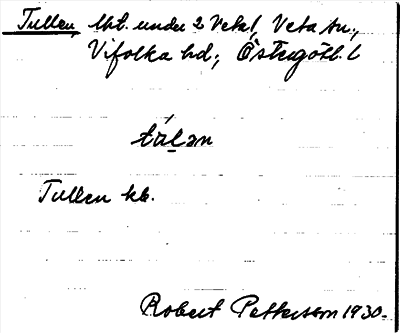 Tullen, lht. under 2 Veta!, Veta sn.,
Vifolka hd., Östergötl. l
túlən
Tullen kb.
Robert Pettersson 1930.